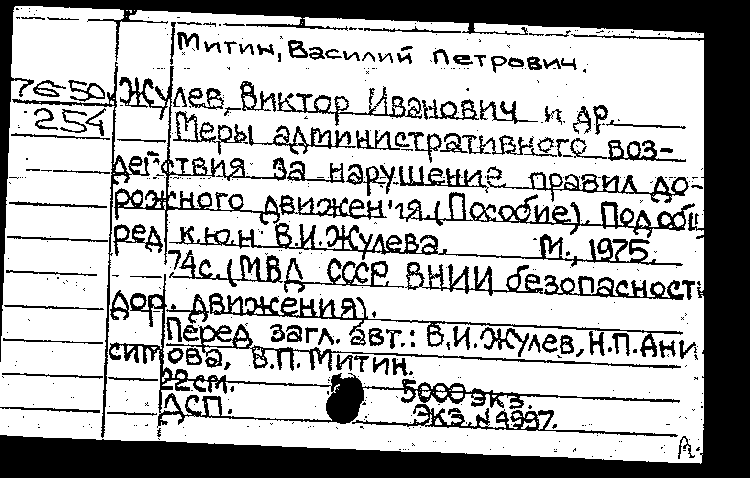 Митин, Василий Петрович.
76-50 Жулев, Виктор Иванович и др.
254 Меры административного воз-
действия за нарушение правил до-
рожного движения. (Пособие). Под общ
ред к.ю.н В.И.Жулева. М., 1975.
74с. (МВД СССР. ВНИИ безопасност
дор. движения).
Перед загл. авт.: В.И.Жулев, Н.П.Ани
симова, В.П.Митин.
22см. 5000 экз.
ДСП. Экз. N 4997.